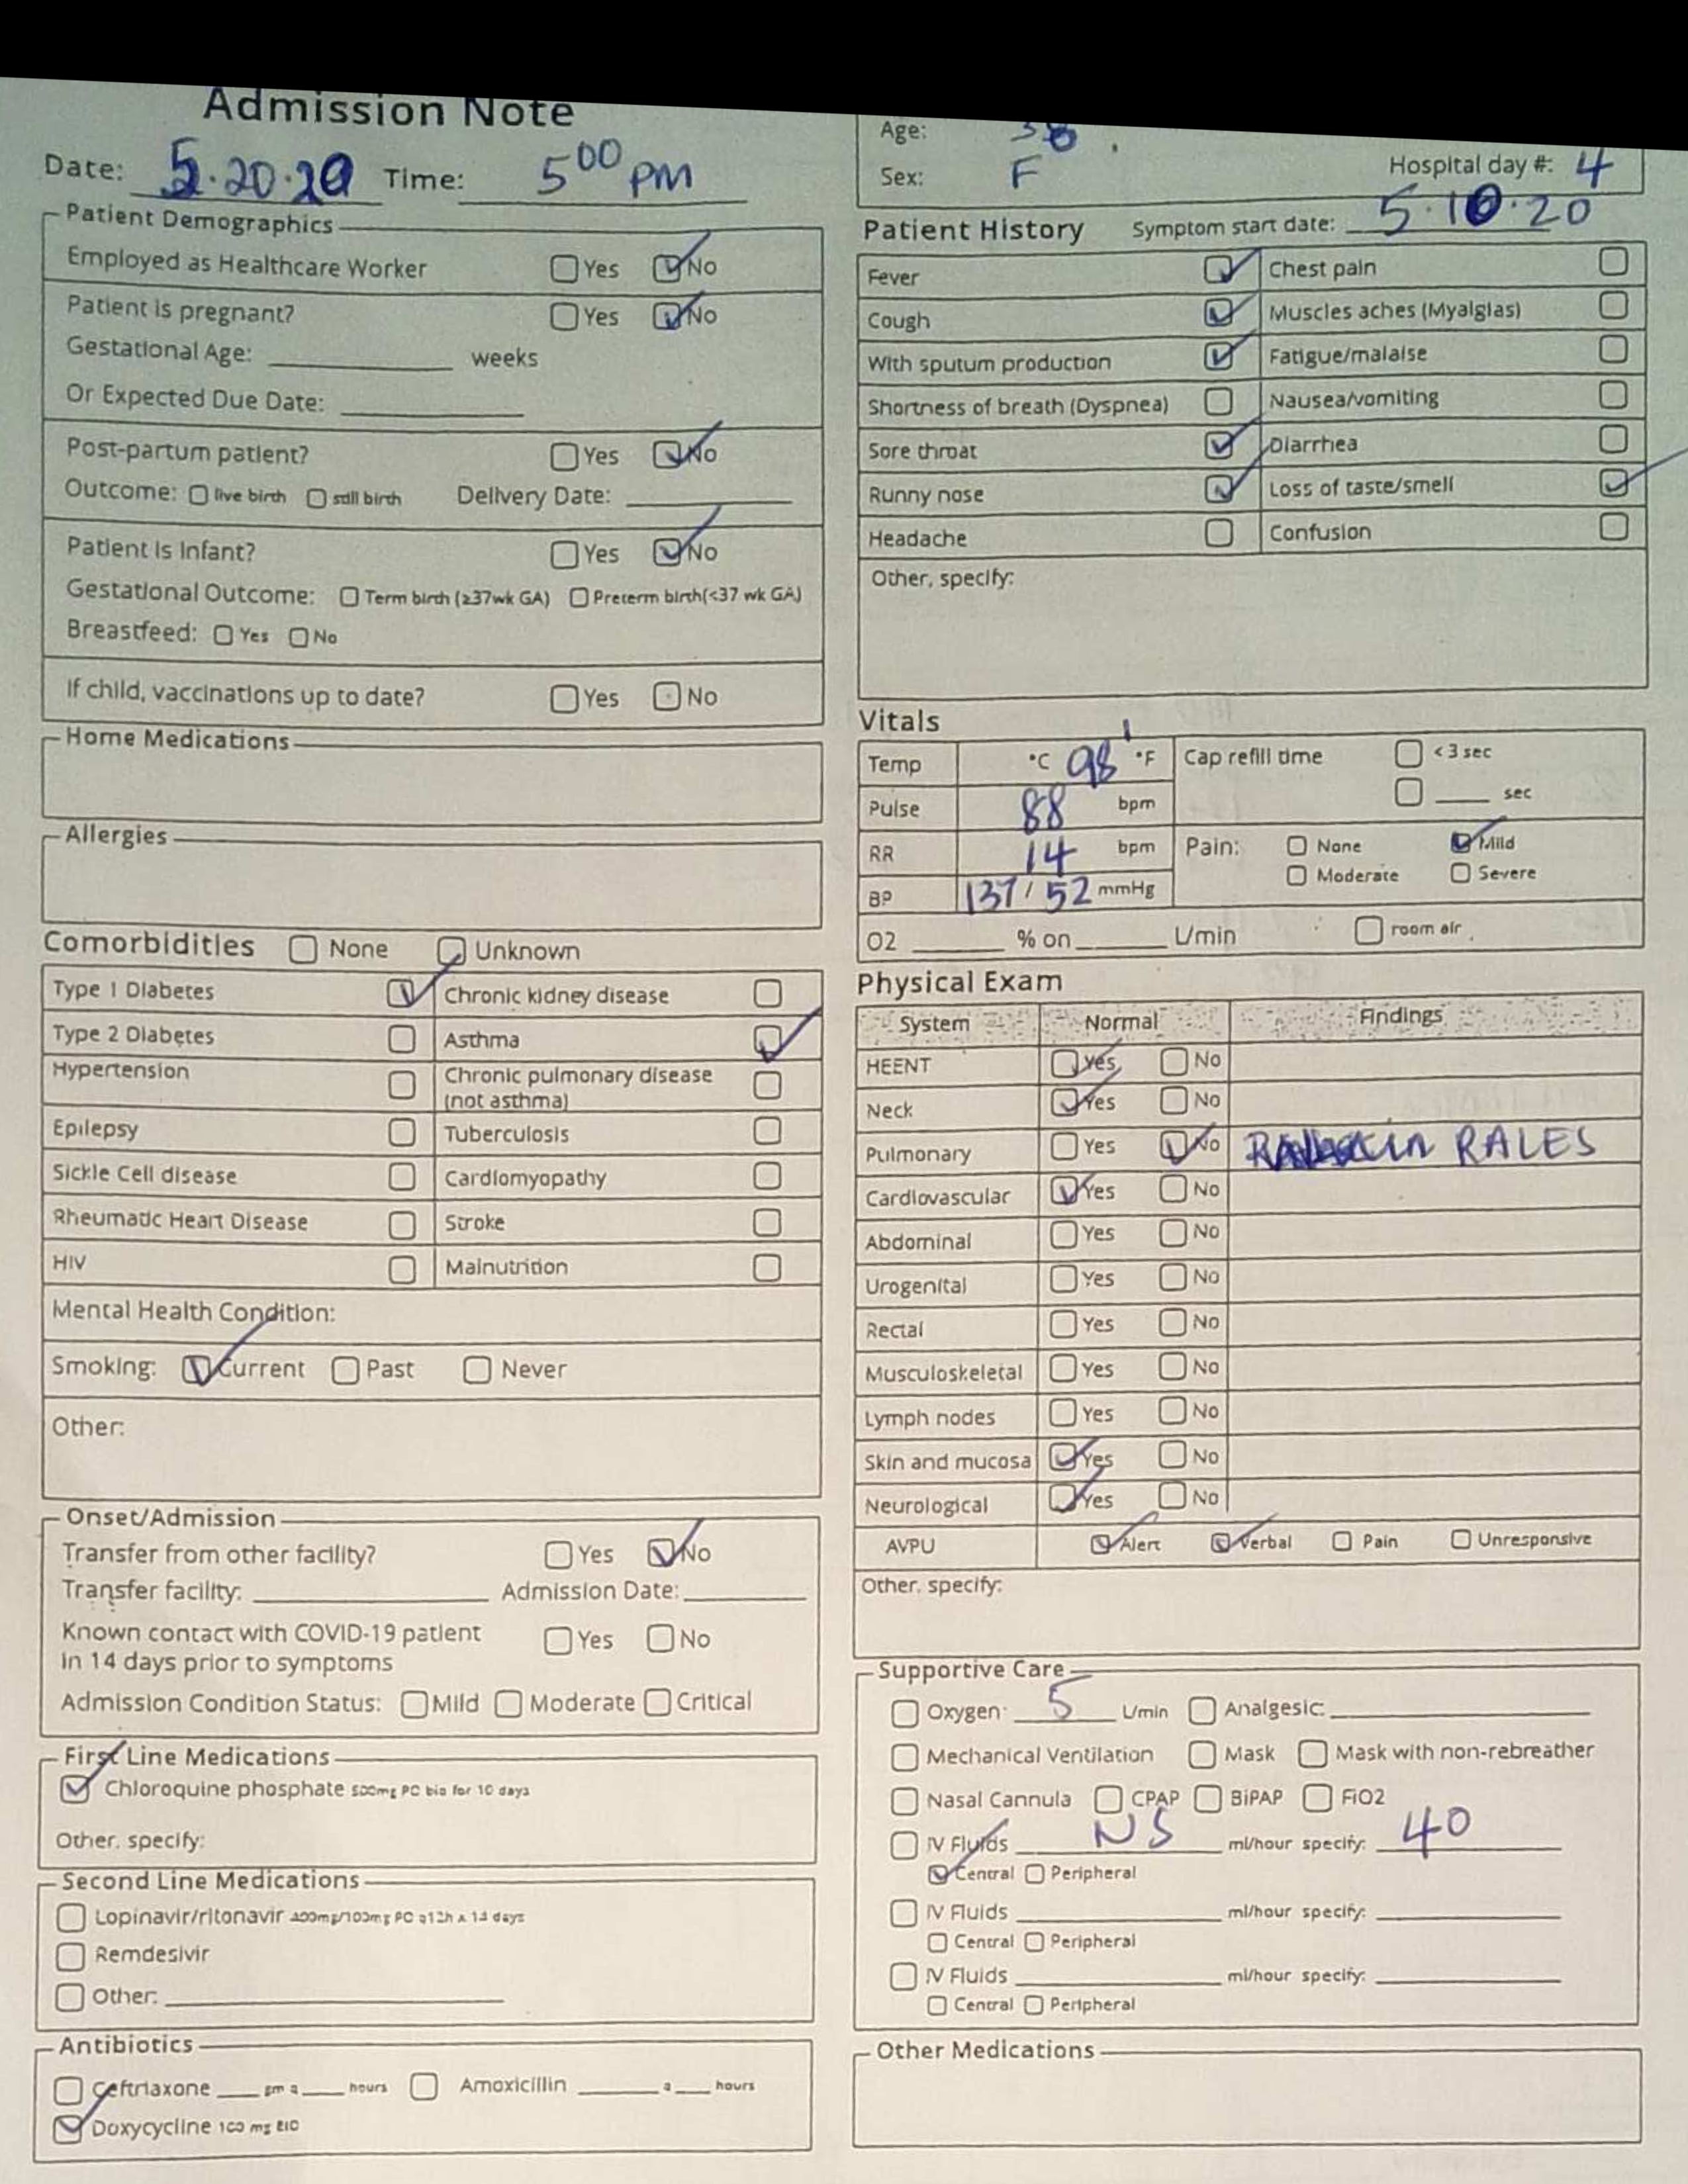 Admission Note
Date: 5.20.20 Time: 5 00 PM
Patient Demographics
Employed as Healthcare Worker Yes No
Patient is pregnant? Yes No
Gestational Age: weeks
Or Expected Due Date:
Post-partum patient? Yes No
Outcome: live birth still birth Delivery Date:
Patient is Infant? Yes No
Gestational Outcome: Term birth (≥37wk GA) Preterm birth(<37 wk GA)
Breastfeed: Yes No
If child, vaccinations up to date? Yes No
Home Medications
Allergies
Comorbidities None Unknown
Type 1 Diabetes Chronic kidney disease
Type 2 Diabetes Asthma
Hypertension Chronic pulmonary disease
(not asthma)
Epilepsy Tuberculosis
Sickle Cell disease Cardiomyopathy
Rheumatic Heart Disease Stroke
HIV Malnutrition
Mental Health Condition:
Smoking: Current Past Never
Other:
Onset/Admission
Transfer from other facility? Yes No
Transfer facility: Admission Date:
Known contact with COVID-19 patient Yes No
in 14 days prior to symptoms
Admission Condition Status: Mild Moderate Critical
First Line Medications
Chloroquine phosphate 500mg PC bid for 10 days
Other, specify:
Second Line Medications
Lopinavir/ritonavir 400mg/100mg PC q12h x 14 days
Remdesivir
Other:
Antibiotics
Ceftriaxone gm q hours Amoxicillin q hours
Doxycycline 100 mg BID
Age: 38
Sex: F Hospital day #: 4
Patient History Symptom start date: 5.10.20
Fever Chest pain
Cough Muscles aches (Myalgias)
With sputum production Fatigue/malaise
Shortness of breath (Dyspnea) Nausea/vomiting
Sore throat Diarrhea
Runny nose Loss of taste/smell
Headache Confusion
Other, specify:
Vitals
Temp °C 98 °F Cap refill time < 3 sec
sec
Pulse 88 bpm
RR 14 bpm Pain: None Mild
Moderate Severe
BP 137 / 52 mmHg
O2 % on L/min room air
Physical Exam
System Normal Findings
HEENT Yes No
Neck Yes No
Pulmonary Yes No RALES
Cardiovascular Yes No
Abdominal Yes No
Urogenital Yes No
Rectal Yes No
Musculoskeletal Yes No
Lymph nodes Yes No
Skin and mucosa Yes No
Neurological Yes No
AVPU Alert Verbal Pain Unresponsive
Other, specify:
Supportive Care
Oxygen: 5 L/min Analgesic:
Mechanical Ventilation Mask Mask with non-rebreather
Nasal Cannula CPAP BiPAP FiO2
IV Fluids NS ml/hour specify: 40
Central Peripheral
IV Fluids ml/hour specify:
Central Peripheral
IV Fluids ml/hour specify:
Central Peripheral
Other Medications